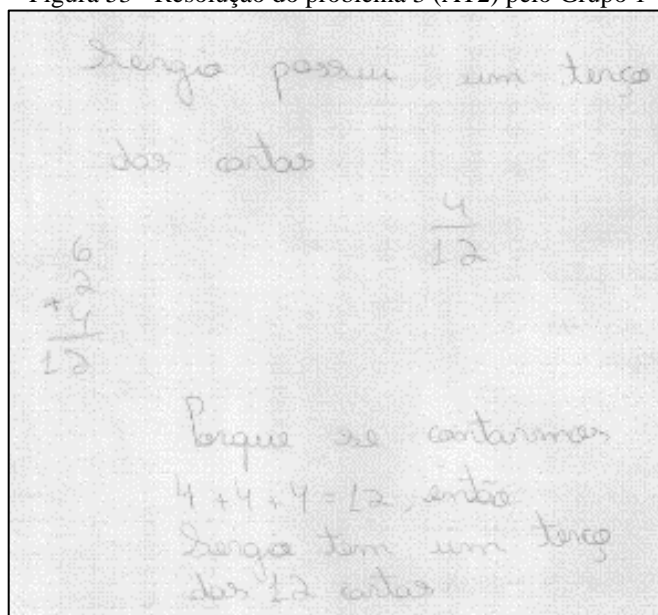 Figura 33 - Resolução do problema 3 (AT2) pelo Grupo 1
Sérgio possui um terço
das cartas
4
12
6
2
+4
12
Porque se contarmos
4+4+4=12, então
Sergio tem um terço
das 12 cartas